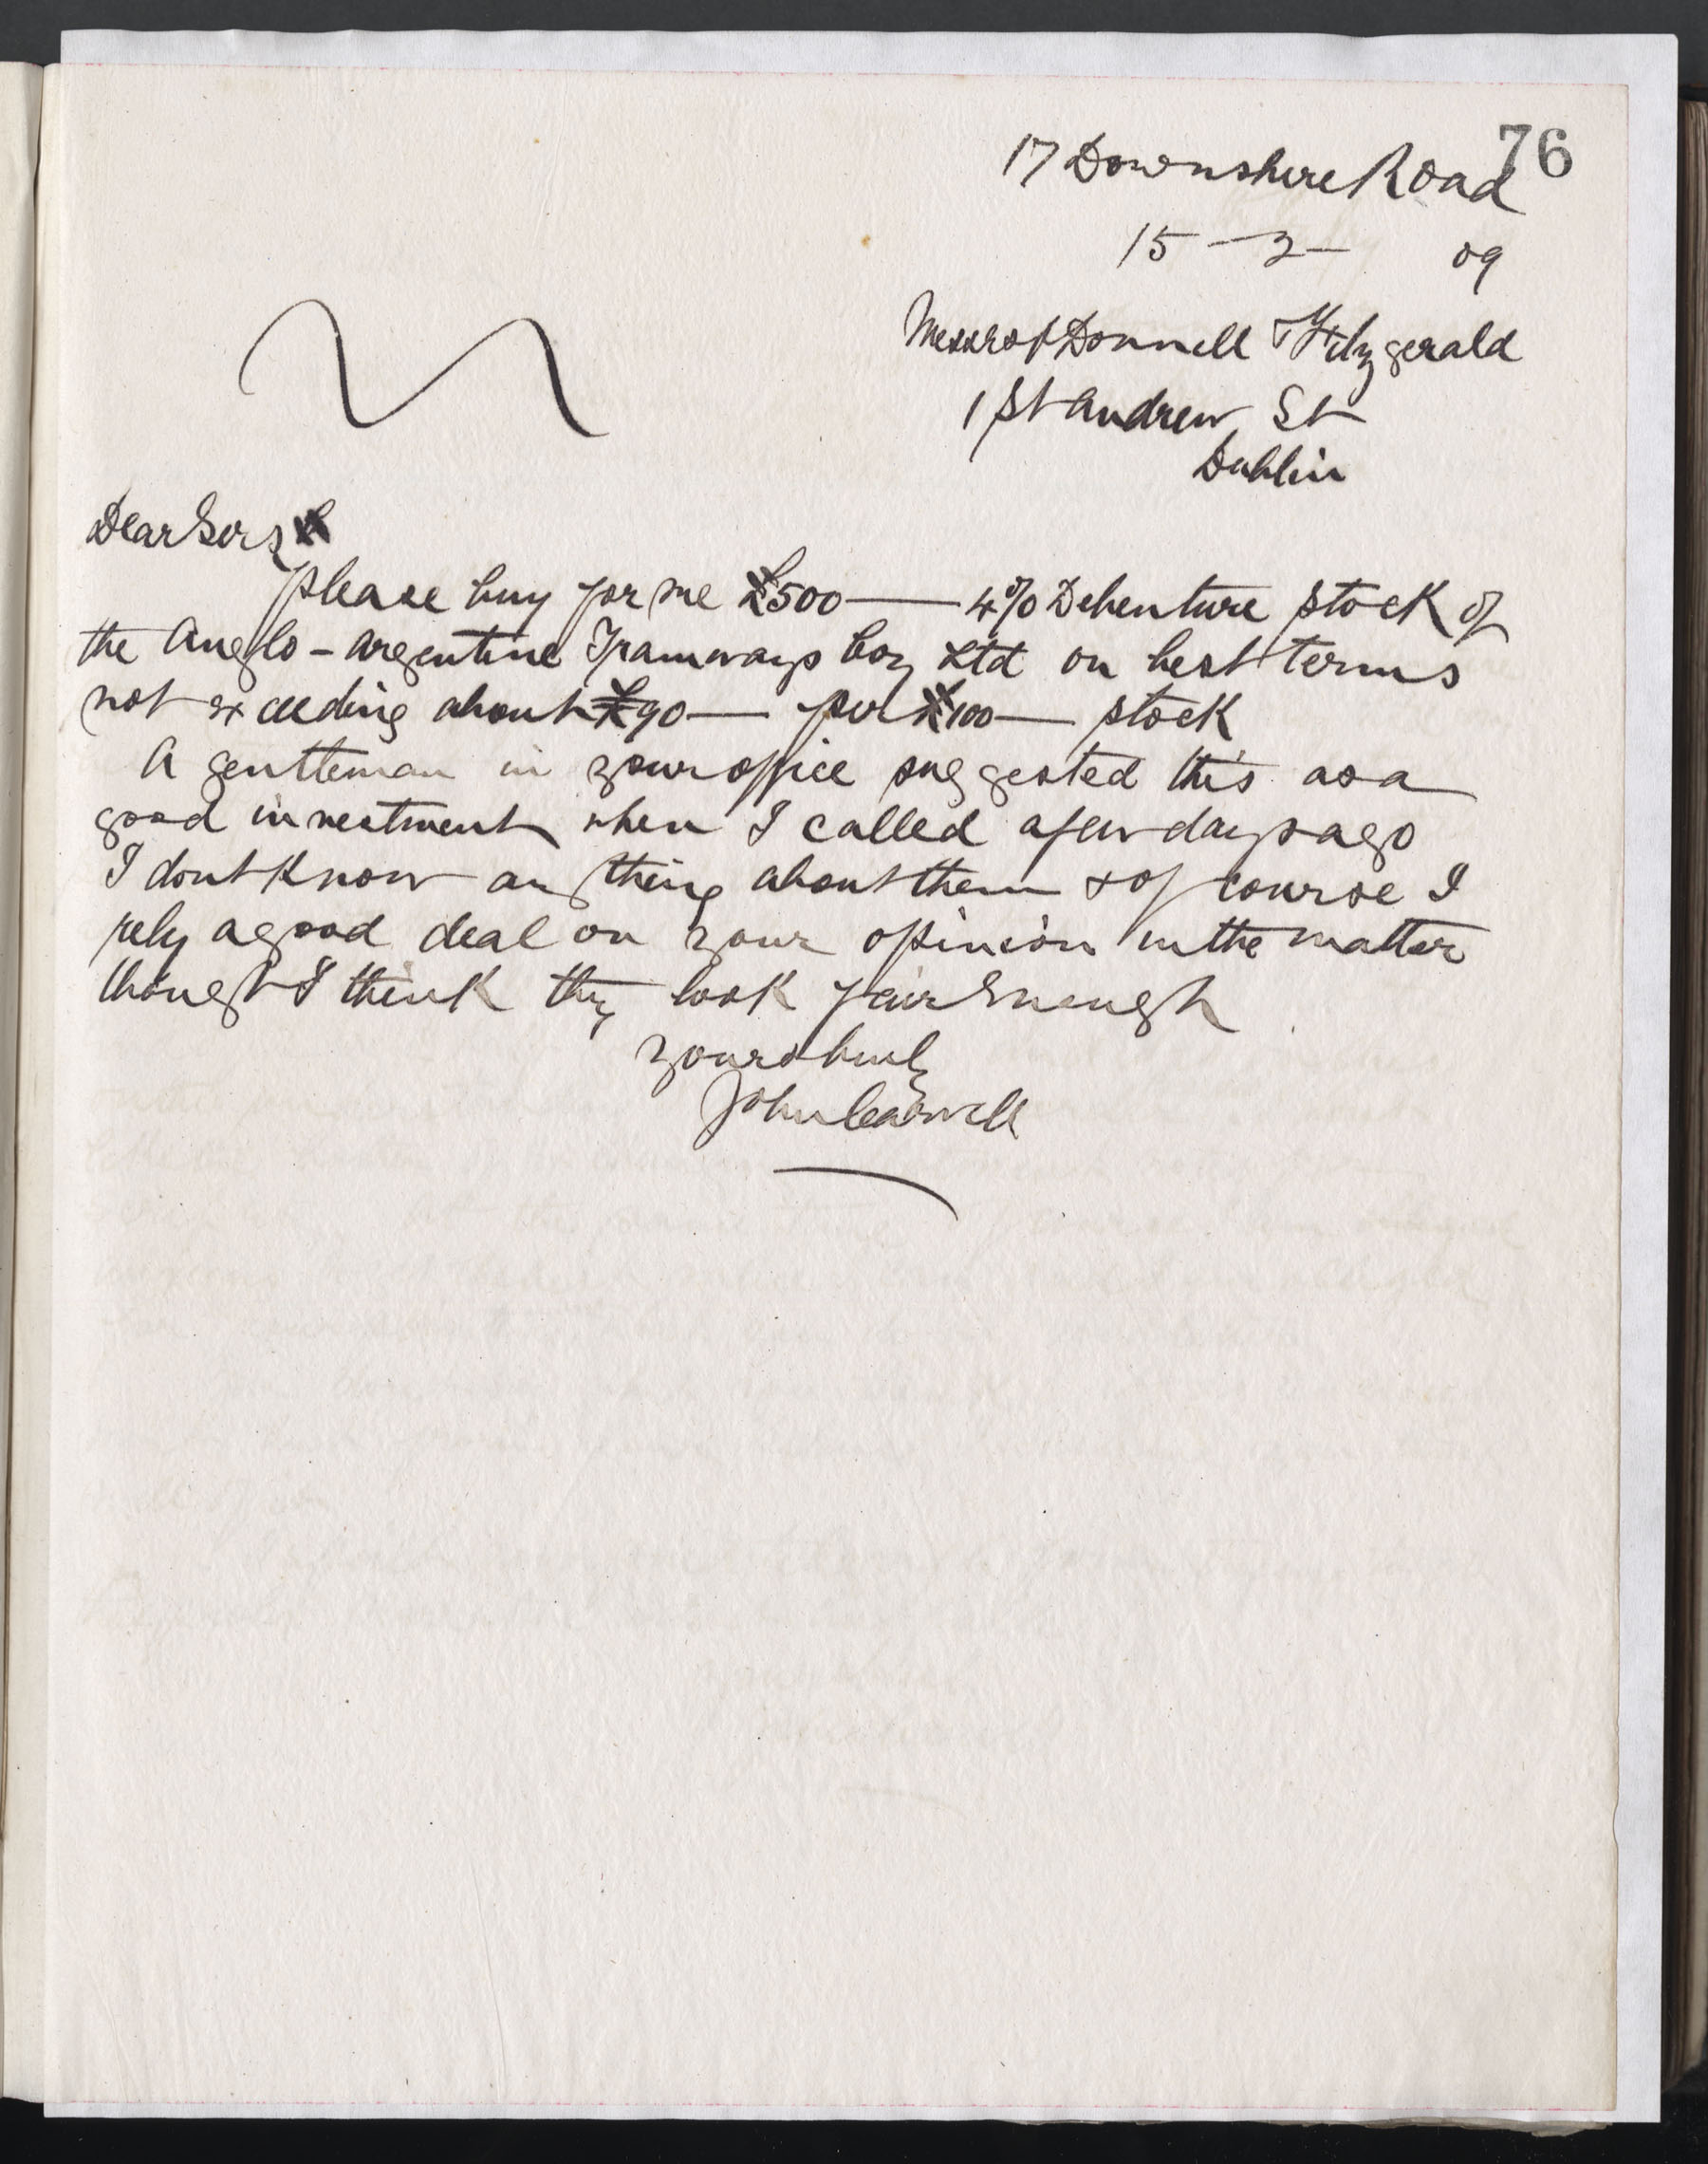 76
17 Downshire Road
15 - 2 - 09
Messrs O'Donnell & Fitzgerald
1 St Andrew St
Dublin
Dear Sirs
Please buy for me £500 — 4% Debenture stock of
the Anglo-Argentine Tramways Coy Ltd on best terms
not exceeding about £90 — per £100 — stock
A gentleman in your office suggested this as a
good investment when I called a few days ago
I dont know anything about them & of course I
rely a good deal on your opinion in the matter
though I think they look fair enough
Yours truly
John